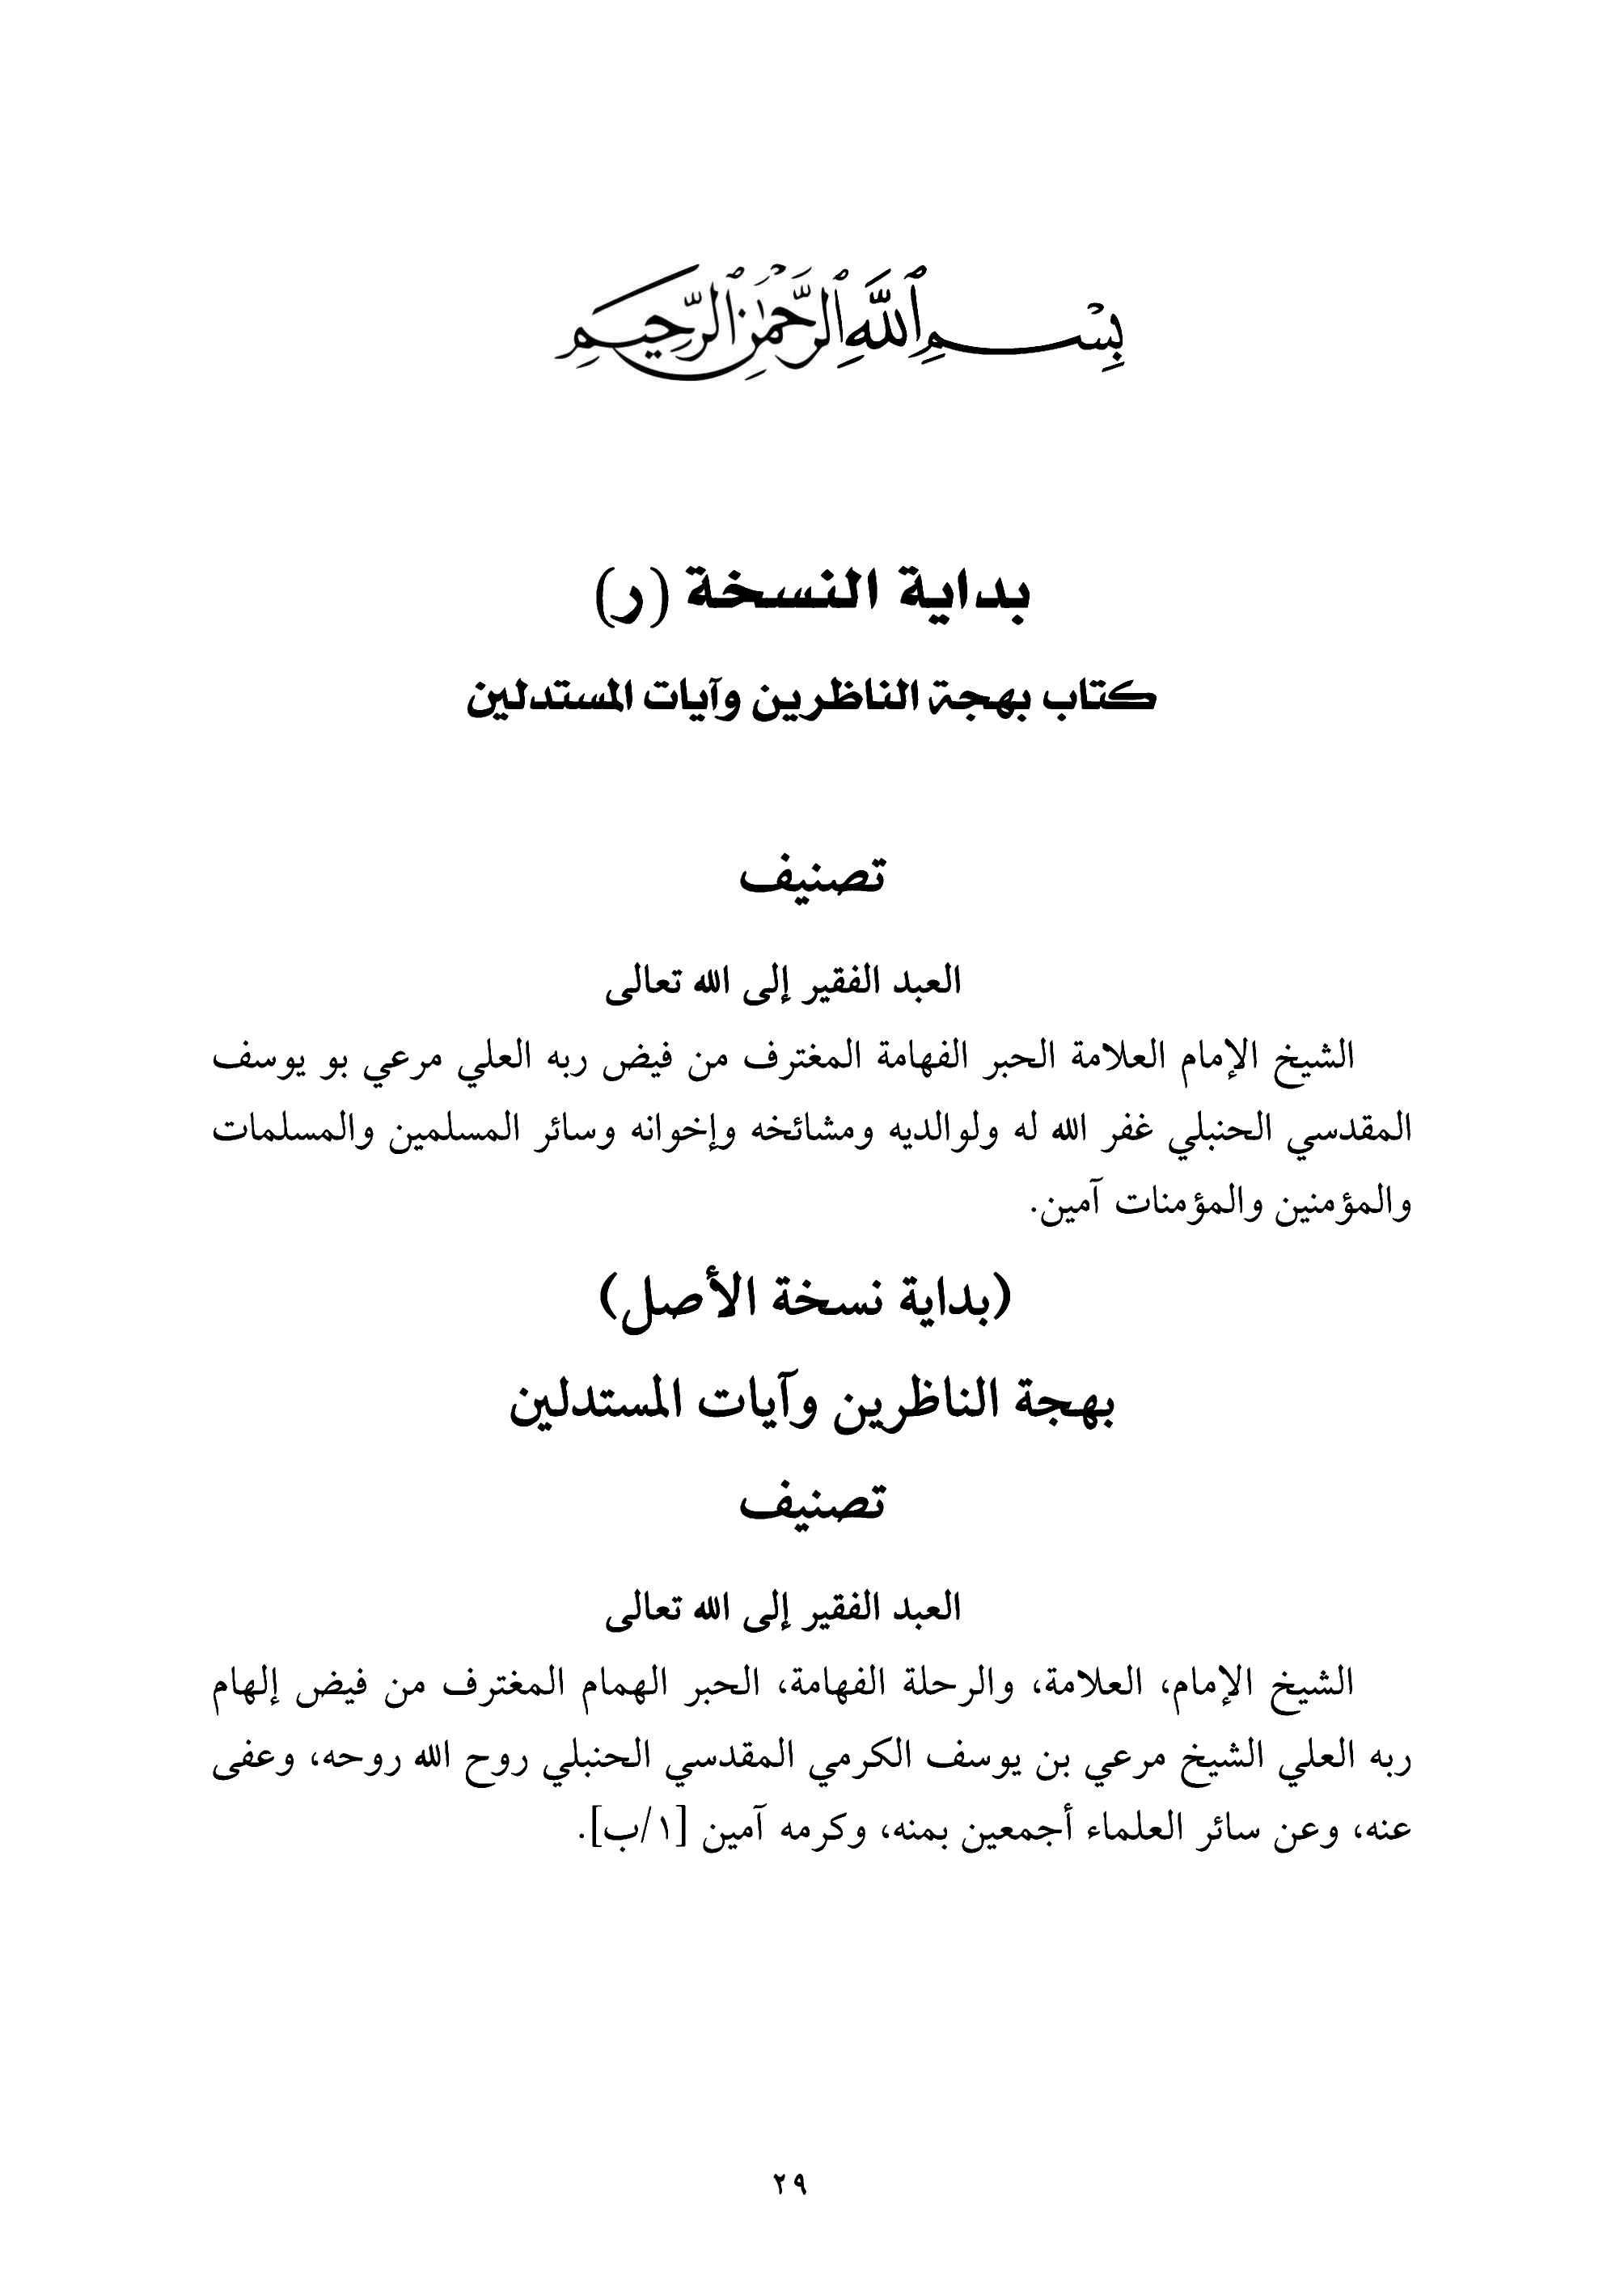 بِسْمِ ٱللَّهِ ٱلرَّحْمَٰنِ ٱلرَّحِيمِ
بداية النسخة (ر)
كتاب بهجة الناظرين وآيات المستدلين
تصنيف
العبد الفقير إلى الله تعالى
الشيخ الإمام العلامة الحبر الفهامة المغترف من فيض ربه العلي مرعي بو يوسف
المقدسي الحنبلي غفر الله له ولوالديه ومشائخه وإخوانه وسائر المسلمين والمسلمات
والمؤمنين والمؤمنات آمين.
(بداية نسخة الأصل)
بهجة الناظرين وآيات المستدلين
تصنيف
العبد الفقير إلى الله تعالى
الشيخ الإمام، العلامة، والرحلة الفهامة، الحبر الهمام المغترف من فيض إلهام
ربه العلي الشيخ مرعي بن يوسف الكرمي المقدسي الحنبلي روح الله روحه، وعفى
عنه، وعن سائر العلماء أجمعين بمنه، وكرمه آمين [١/ب].
٢٩